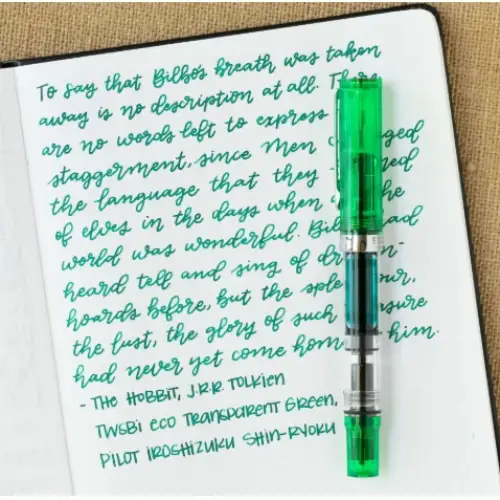 To say that Bilbo's breath was taken
away is no description at all. There
are no words left to express
staggerment, since Men
the language that they
of elves in the days when
world was wonderful.
heard tell and sing of
hoards before, but the
the lust, the glory of such
had never yet come him.
- THE HOBBIT, J.R.R. TOLKIEN
TWSBI ECO TRANSPARENT GREEN,
PILOT IROSHIZUKU SHIN-RYOKU